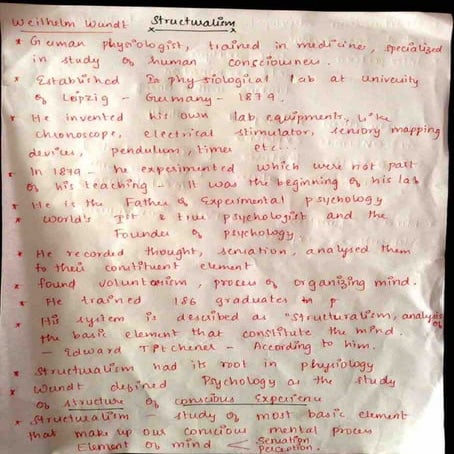 Weilhelm Wundt Structuralism
* German physiologist, trained in medicine, specialized
in study of human consciousness.
* Established Ist physiological lab at univeuity
of Lipzig - Germany - 1879.
* He invented his own lab equipments, like
chronoscope, electrical stimulator, sensory mapping
devices, pendulum, timer etc...
* In 1879 - he experimented which were not part
of his teaching - It was the beginning of his lab
* He is the Father of Experimental psychology
* World's Ist & true psychologist and the
Founder of psychology.
* He recorded thought, sensation, analysed them
to their constituent element
* found voluntarism, process of organizing mind.
* He trained 186 graduates in p
* His system is described as "Structuralism, analysis of
the basic element that constitute the mind.
- Edward Titchener - According to him.
* Structuralism had its root in physiology
* Wundt defined Psychology as the study
of structure of conscious Experience
* Structuralism - study of most basic element
that make up our conscious mental process
Element of mind < Sensation
perception.